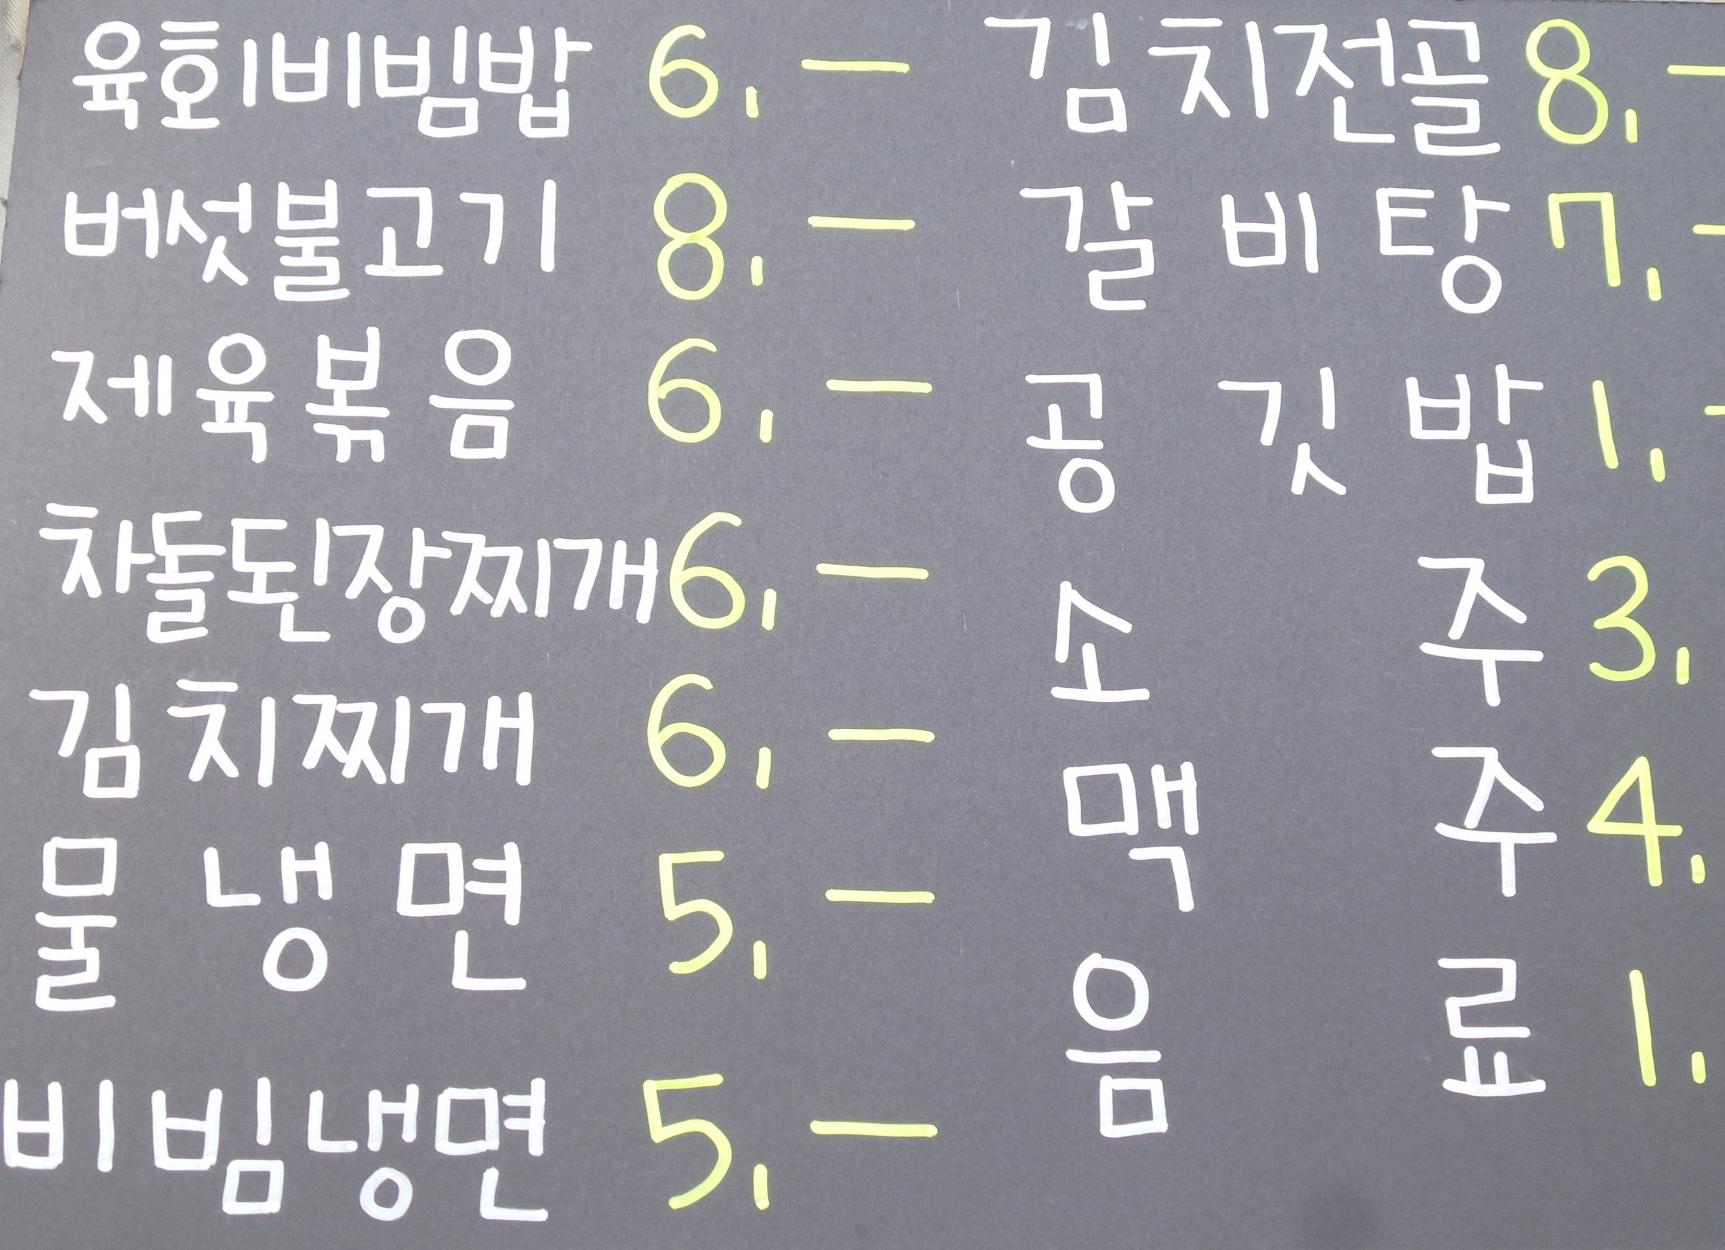 육회비빔밥 6,—
버섯불고기 8,—
제육볶음 6,—
차돌된장찌개 6,—
김치찌개 6,—
물냉면 5,—
비빔냉면 5,—
김치전골 8,—
갈비탕 7,—
공깃밥 1,—
소주 3,
맥주 4,
음료 1,